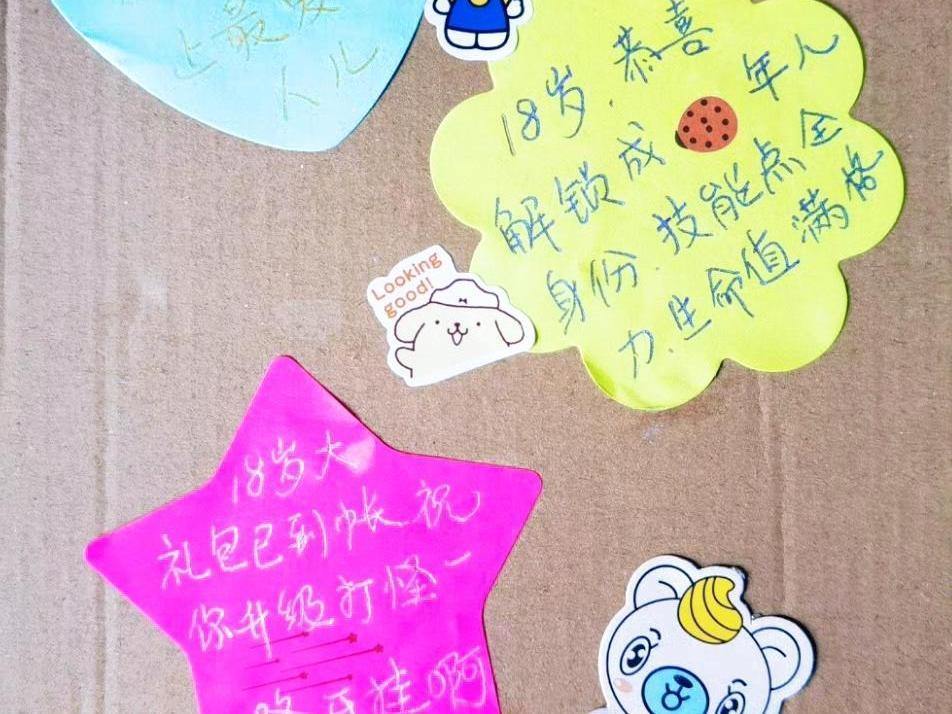 上最爱
人儿
18岁.恭喜
解锁成年人
身份.技能点全
力.生命值满格
Looking
good!
18岁大
礼包已到帐祝
你升级打怪一
路开挂啊